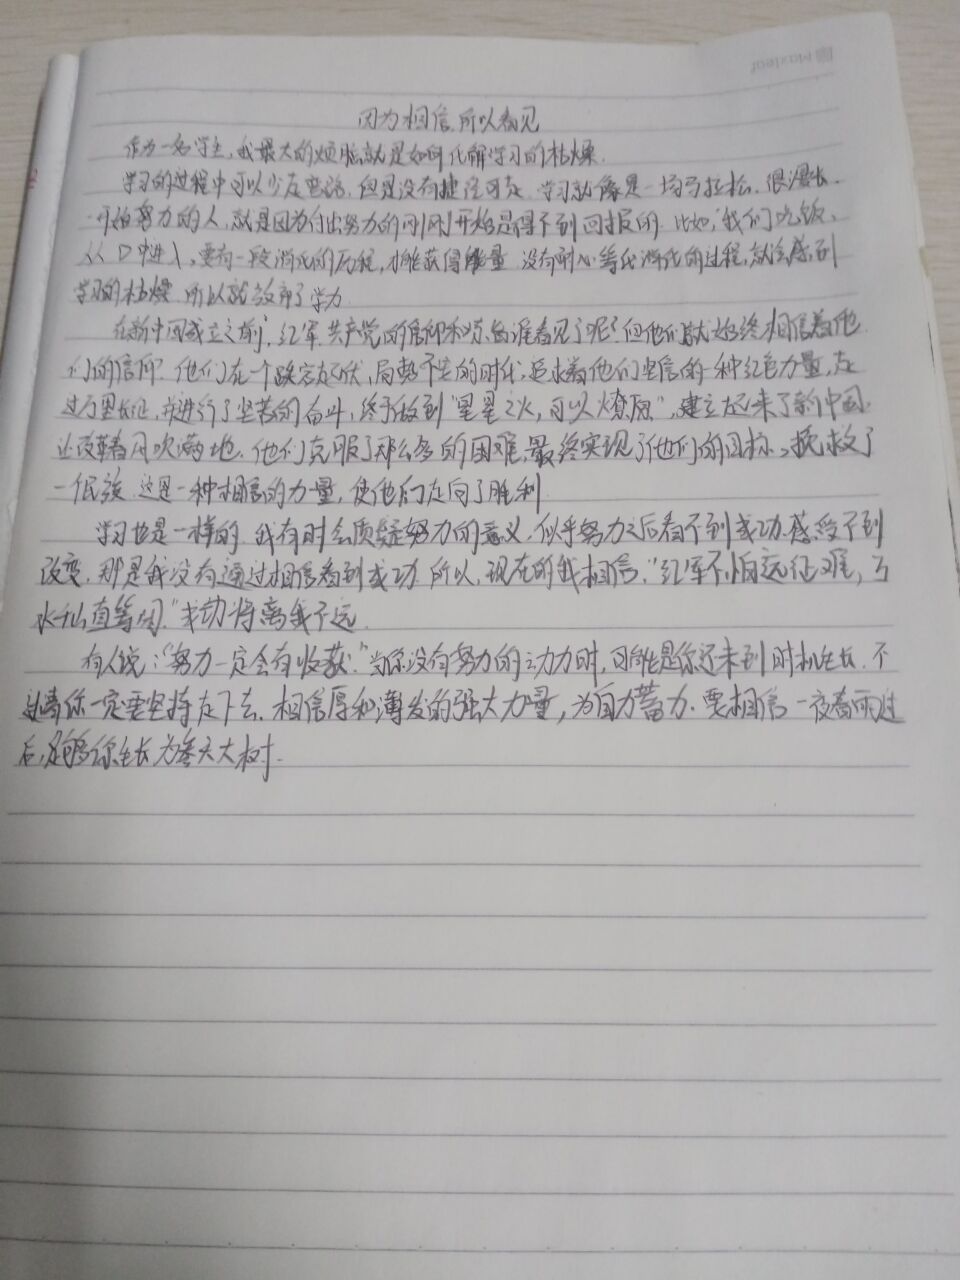 Maxleaf
因为相信,所以看见
作为一名学生,我最大的烦恼就是如何化解学习的枯燥.
学习的过程中可以少走弯路.但是没有捷径可走.学习就像是一场马拉松.很漫长.
开始努力的人,就是因为付出努力的刚刚开始是得不到回报的.比如,我们吃饭,
从口中进入,要有一段消化的历程,才能获得能量.没有耐心等化消化的过程,就会感到
学习的枯燥.所以就放弃了学力.
在新中国成立之前,红军、共产党的信仰和 谁看见了呢?但他们就始终相信着他
们的信仰.他们在一个跌宕起伏,局势不定的时代,追求着他们坚信的一种红色力量,走
过万里长征,并进行了坚苦的奋斗,终于做到"星星之火,可以燎原",建立起来了新中国.
让改革春风吹满地.他们克服了那么多的困难,最终实现了他们的目标。拯救了
一 民族.这是一种相信的力量,使他们走向了胜利.
学习也是一样的.我有时会质疑努力的意义,似乎努力之后看不到成功.感受不到
改变,那是我没有通过相信看到成功.所以,现在的我相信,"红军不怕远征难,万
水千山只等闲."成功将离我不远.
有人说:"努力一定会有收获."当你没有努力的动力时,可能是你还未到时机生长.不
过请你一定要坚持走下去.相信厚积薄发的强大力量,为自力蓄力.要相信一夜春雨过
后,足够你生长为参天大树.